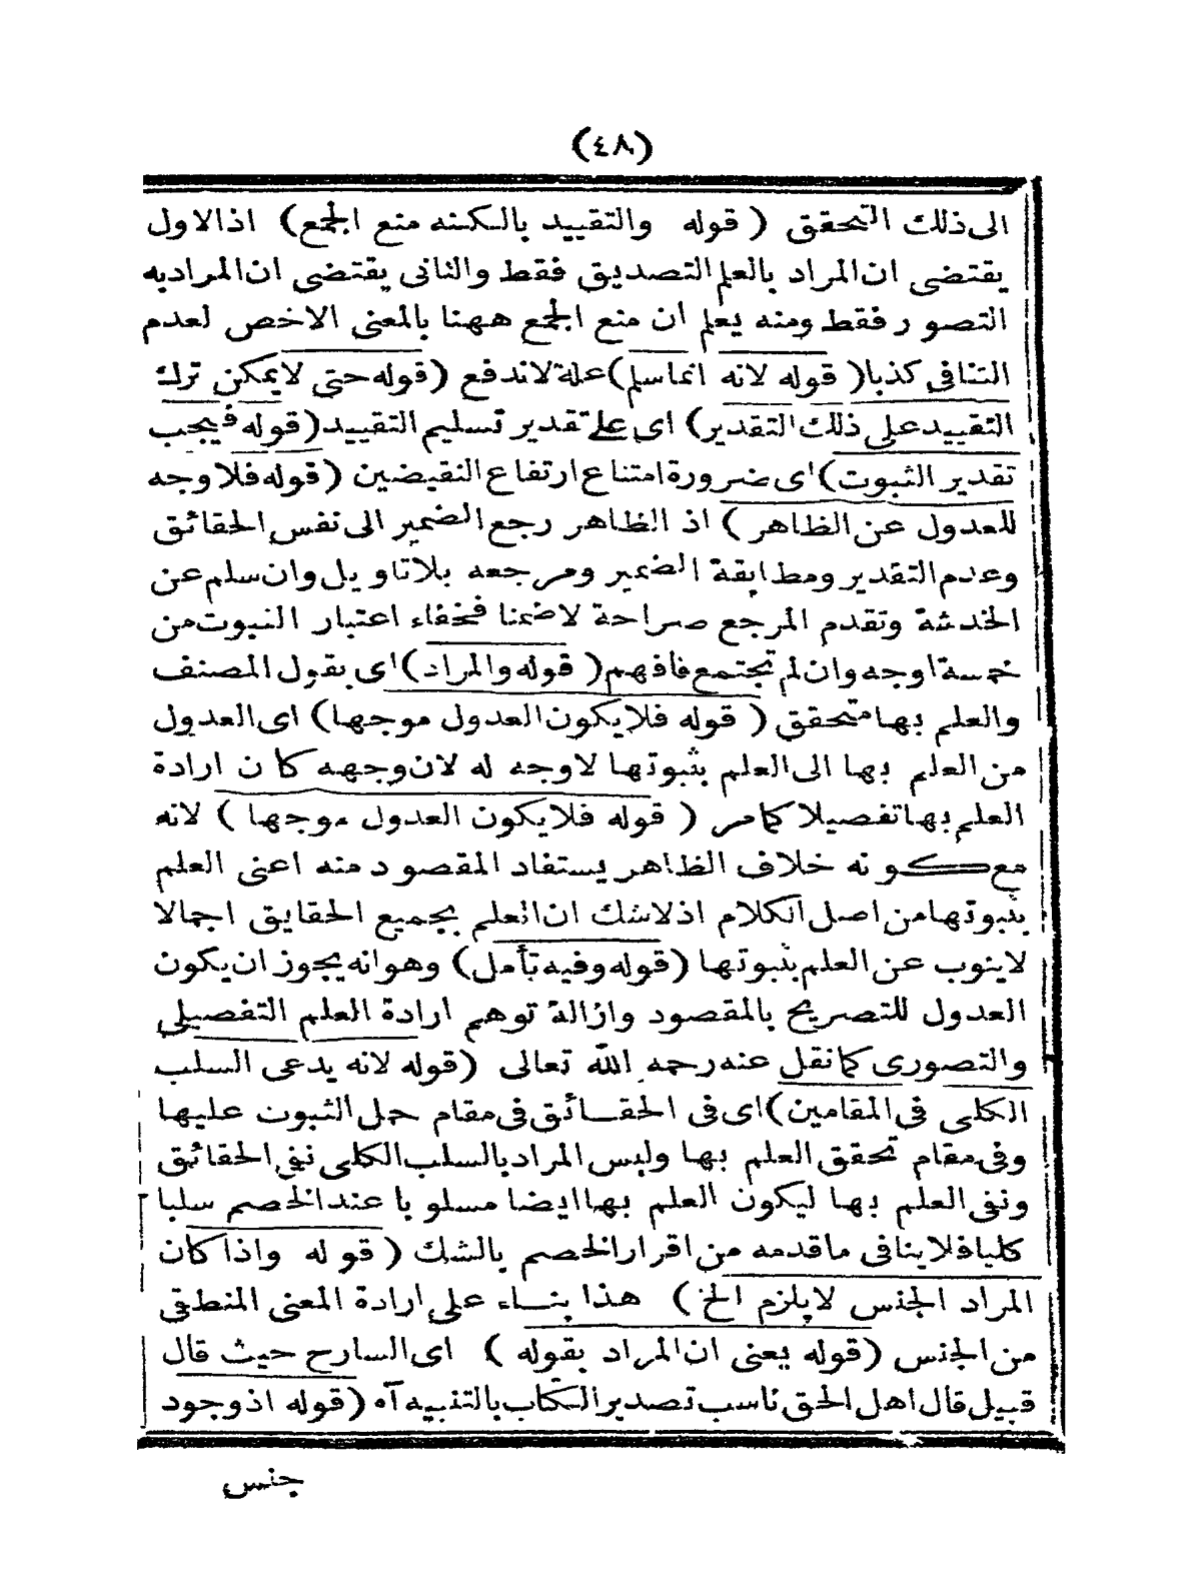 (٤٨)
الى ذلك التحقق ( قوله والتقييد بالكنه منع الجمع ) اذ الاول
يقتضى ان المراد بالعلم التصديق فقط والثانى يقتضى ان المراد به
التصور فقط ومنه يعلم ان منع الجمع ههنا بالمعنى الاخص لعدم
التنافى كذبا ( قوله لانه انما سلم ) علة لاندفع ( قوله حتى لايمكن ترك
التقييد على ذلك التقدير ) اى على تقدير تسليم التقييد ( قوله فيجب
تقدير الثبوت ) اى ضرورة امتناع ارتفاع النقيضين ( قوله فلا وجه
للعدول عن الظاهر ) اذ الظاهر رجع الضمير الى نفس الحقائق
وعدم التقدير ومطابقة الضمير ومرجعه بلا تاويل وان سلم عن
الخدشة وتقدم المرجع صراحة لاضمنا فخفاء اعتبار الثبوت من
خمسة اوجه وان لم تجتمع فافهم ( قوله والمراد ) اى بقول المصنف
والعلم بها متحقق ( قوله فلا يكون العدول موجها ) اى العدول
من العلم بها الى العلم بثبوتها لاوجه له لان وجهه كان ارادة
العلم بها تفصيلا كما مر ( قوله فلا يكون العدول موجها ) لانه
مع كونه خلاف الظاهر يستفاد المقصود منه اعنى العلم
بثبوتها من اصل الكلام اذ لاشك ان العلم بجميع الحقايق اجمالا
لاينوب عن العلم بثبوتها ( قوله وفيه تأمل ) وهو انه يجوز ان يكون
العدول للتصريح بالمقصود وازالة توهم ارادة العلم التفصيلى
والتصورى كما نقل عنه رحمه الله تعالى ( قوله لانه يدعى السلب
الكلى فى المقامين ) اى فى الحقائق فى مقام حمل الثبوت عليها
وفى مقام تحقق العلم بها وليس المراد بالسلب الكلى نفى الحقائق
ونفى العلم بها ليكون العلم بها ايضا مسلوبا عند الخصم سلبا
كليا فلا ينافى ماقدمه من اقرار الخصم بالشك ( قوله واذا كان
المراد الجنس لايلزم الخ ) هذا بناء على ارادة المعنى المنطقى
من الجنس ( قوله يعنى ان المراد بقوله ) اى السارح حيث قال
قبيل قال اهل الحق ناسب تصدير الكتاب بالتنبيه آه ( قوله اذ وجود
جنس